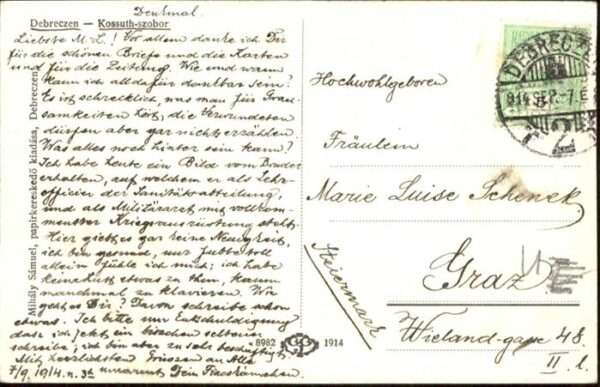 Denkmal
Debreczen — Kossuth-szobor
Liebste M. L.! Vor allem danke ich Dir
für die schönen Briefe und die Karten
und für die Zeitung. Wie und wann
kann ich all dafür dankbar sein?
Es ist schrecklich, was man für Grau-
samkeiten hört; die Verwundeten
dürfen aber gar nichts erzählen.
Was alles noch hinter sein kann?
Ich habe heute ein Bild vom Bruder
erhalten, auf welchem er als
offizier der Sanitätsabteilung,
und als Militärarzt mit vollkom-
menster Kriegsausrüstung steht.
Hier giebt es gar keine Neuigkeit,
ich bin gesund, nur
allein fühle ich mich; ich habe
keine Lust etwas zu thun, kaum
manchmal zu Klavieren. Wie
geht es Dir? Davon schreibe schon
etwas. Ich bitte nur Entschuldigung
dass ich jetzt ein bisschen seltener
schreibe; ich bin aber zu sehr beschäftigt.
Mit herzlichsten Grüssen an Alle
7/9. 1914. n. umarmt Dein
Mihály Sámuel, papirkereskedő kiadása, Debreczen
8982
1914
DEBRECZEN
914 SEP. -7. E
2
Hochwohlgeboren
Fräulein
Marie Luise Schenek
Graz
Steiermark
Wieland-gasse 48.
II. l.